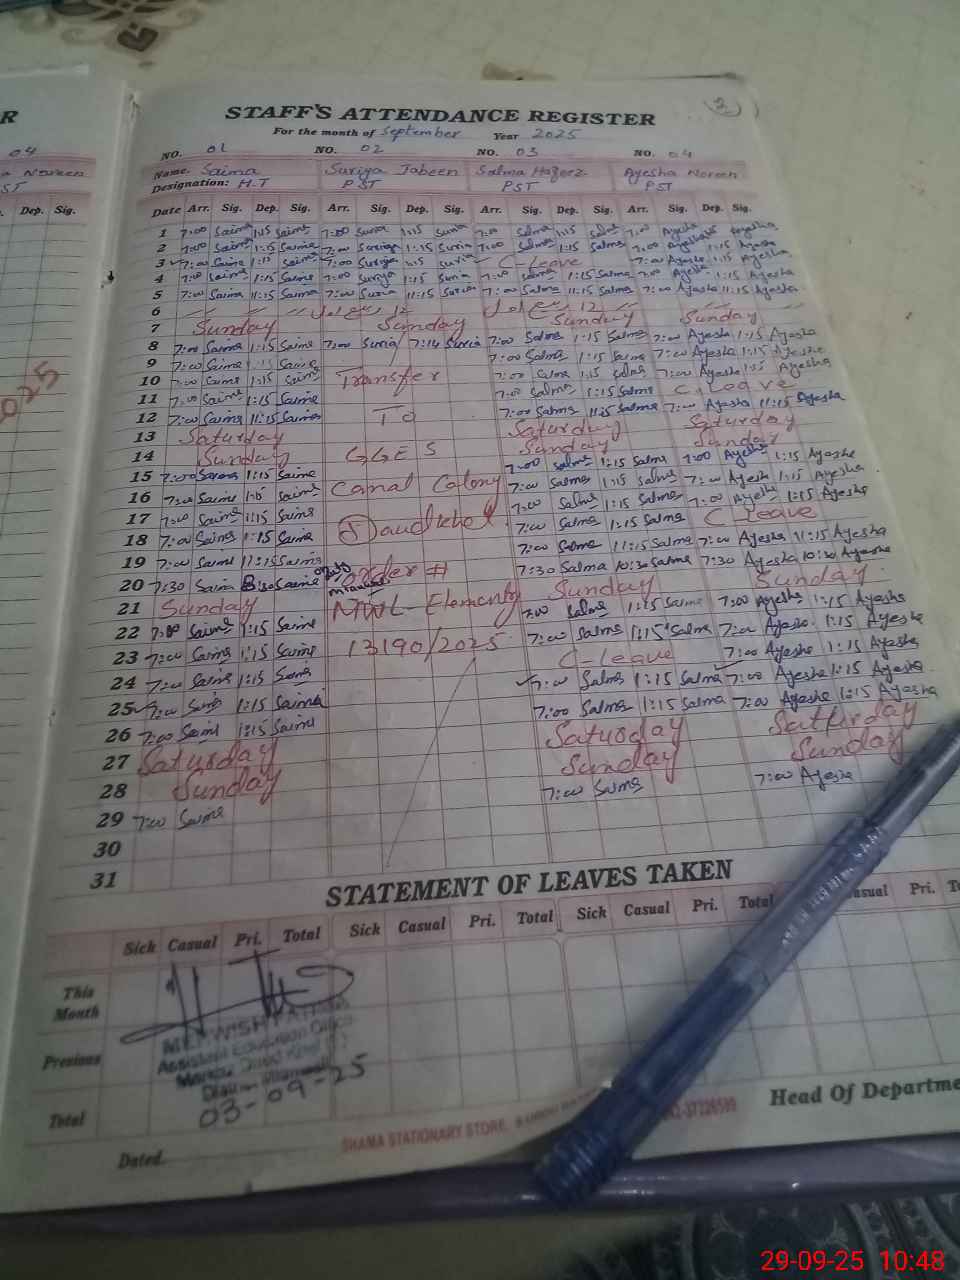 R
04
Noreen
ST
Dep. Sig.
2
STAFF'S ATTENDANCE REGISTER
For the month of September Year 2025
NO. 01 NO. 02 NO. 03 NO. 04
Name. Saima Suriya Jabeen Salma Hafeez Ayesha Noreen
Designation: H.T PST PST PST
Date Arr. Sig. Dep. Sig. Arr. Sig. Dep. Sig. Arr. Sig. Dep. Sig. Arr. Sig. Dep. Sig.
1 7:00 Saima 1:15 Saima 7:00 Suria 1:15 Suria 7:00 Salma 1:15 Salma 7:00 Ayesha Ayesha
2 7:00 Saima 1:15 Saima 7:00 Suriya 1:15 Suria 7:00 Salma 1:15 Salma 7:00 Ayesha 1:15 Ayesha
3 7:00 Saima 1:15 Saima 7:00 Suriya 1:15 Suria C-Leave 7:00 Ayesha 1:15 Ayesha
4 7:00 Saima 1:15 Saima 7:00 Suriya 1:15 Suria 7:00 Salma 1:15 Salma 7:00 Ayesha 1:15 Ayesha
5 7:00 Saima 11:15 Saima 7:00 Suria 11:15 Suria 7:00 Salma 11:15 Salma 7:00 Ayesha 11:15 Ayesha
6 12 12
7 Sunday Sunday Sunday Sunday
8 7:00 Saima 1:15 Saima 7:00 Suria 7:14 Suria 7:00 Salma 1:15 Salma 7:00 Ayesha 1:15 Ayesha
9 7:00 Saima 1:15 Saima 7:00 Salma 1:15 Salma 7:00 Ayesha 1:15 Ayesha
10 7:00 Saima 1:15 Saima Transfer 7:00 Salma 1:15 Salma 7:00 Ayesha 1:15 Ayesha
11 7:00 Saima 1:15 Saima 7:00 Salma 1:15 Salma C-Leave
12 7:00 Saima 11:15 Saima To 7:00 Salma 11:15 Salma 7:00 Ayesha 11:15 Ayesha
13 Saturday Saturday Saturday
14 Sunday GGES Sunday Sunday
15 7:00 Saima 1:15 Saima 7:00 Salma 1:15 Salma 7:00 Ayesha 1:15 Ayesha
16 7:00 Saima 1:15 Saima Canal Colony 7:00 Salma 1:15 Salma 7:00 Ayesha 1:15 Ayesha
17 7:00 Saima 1:15 Saima 7:00 Salma 1:15 Salma 7:00 Ayesha 1:15 Ayesha
18 7:00 Saima 1:15 Saima Daudkhel 7:00 Salma 1:15 Salma C-Leave
19 7:00 Saima 11:15 Saima 7:00 Salma 11:15 Salma 7:00 Ayesha 11:15 Ayesha
20 7:30 Saima 8:30 Saima Order # 7:30 Salma 10:30 Salma 7:30 Ayesha 10:30 Ayesha
21 Sunday MWL-Elementry Sunday Sunday
22 7:00 Saima 1:15 Saima 7:00 Salma 1:15 Salma 7:00 Ayesha 1:15 Ayesha
23 7:00 Saima 1:15 Saima 13190/2025 7:00 Salma 1:15 Salma 7:00 Ayesha 1:15 Ayesha
24 7:00 Saima 1:15 Saima C-Leave 7:00 Ayesha 1:15 Ayesha
25 7:00 Saima 1:15 Saima 7:00 Salma 1:15 Salma 7:00 Ayesha 1:15 Ayesha
26 7:00 Saima 1:15 Saima 7:00 Salma 1:15 Salma 7:00 Ayesha 1:15 Ayesha
27 Saturday Saturday Satturday
28 Sunday Sunday Sunday
29 7:00 Saima 7:00 Salma 7:00 Ayesha
30
31
STATEMENT OF LEAVES TAKEN
Sick Casual Pri. Total Sick Casual Pri. Total Sick Casual Pri. Total Casual Pri.
This Month
Previous
Total
Assistant Education Officer
03-09-25
SHAMA STATIONARY STORE,
Head Of Departme
Dated.
29-09-25 10:48